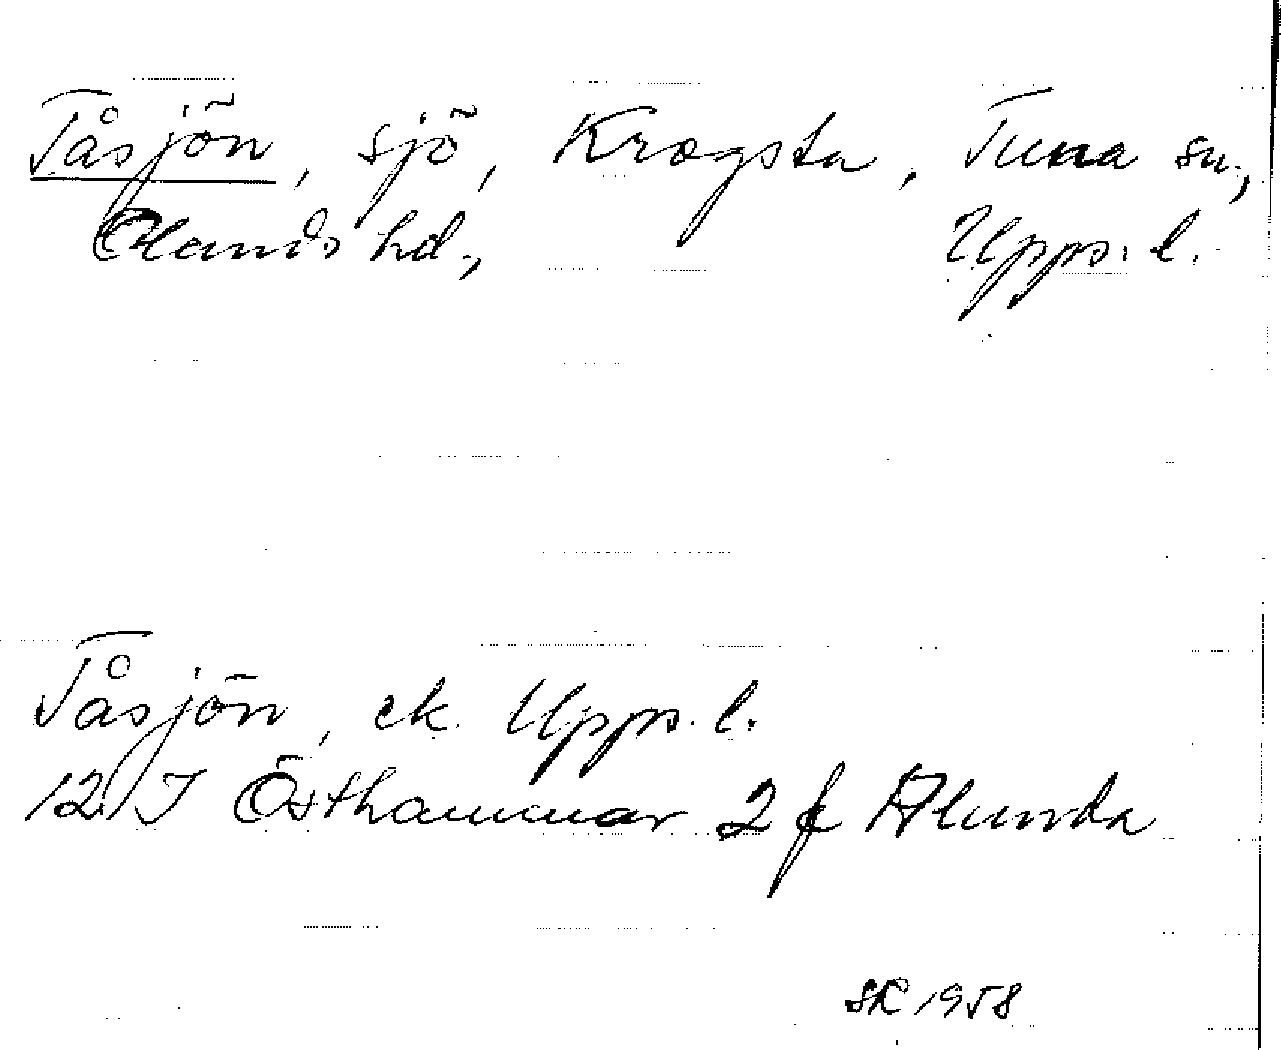 Tåsjön, sjö, Kragsta, Tuna sn,
Olands hd., Upps. l.
Tåsjön, ek. Upps. l.
12 I Östhammar 2 f Alunda
SK 1958